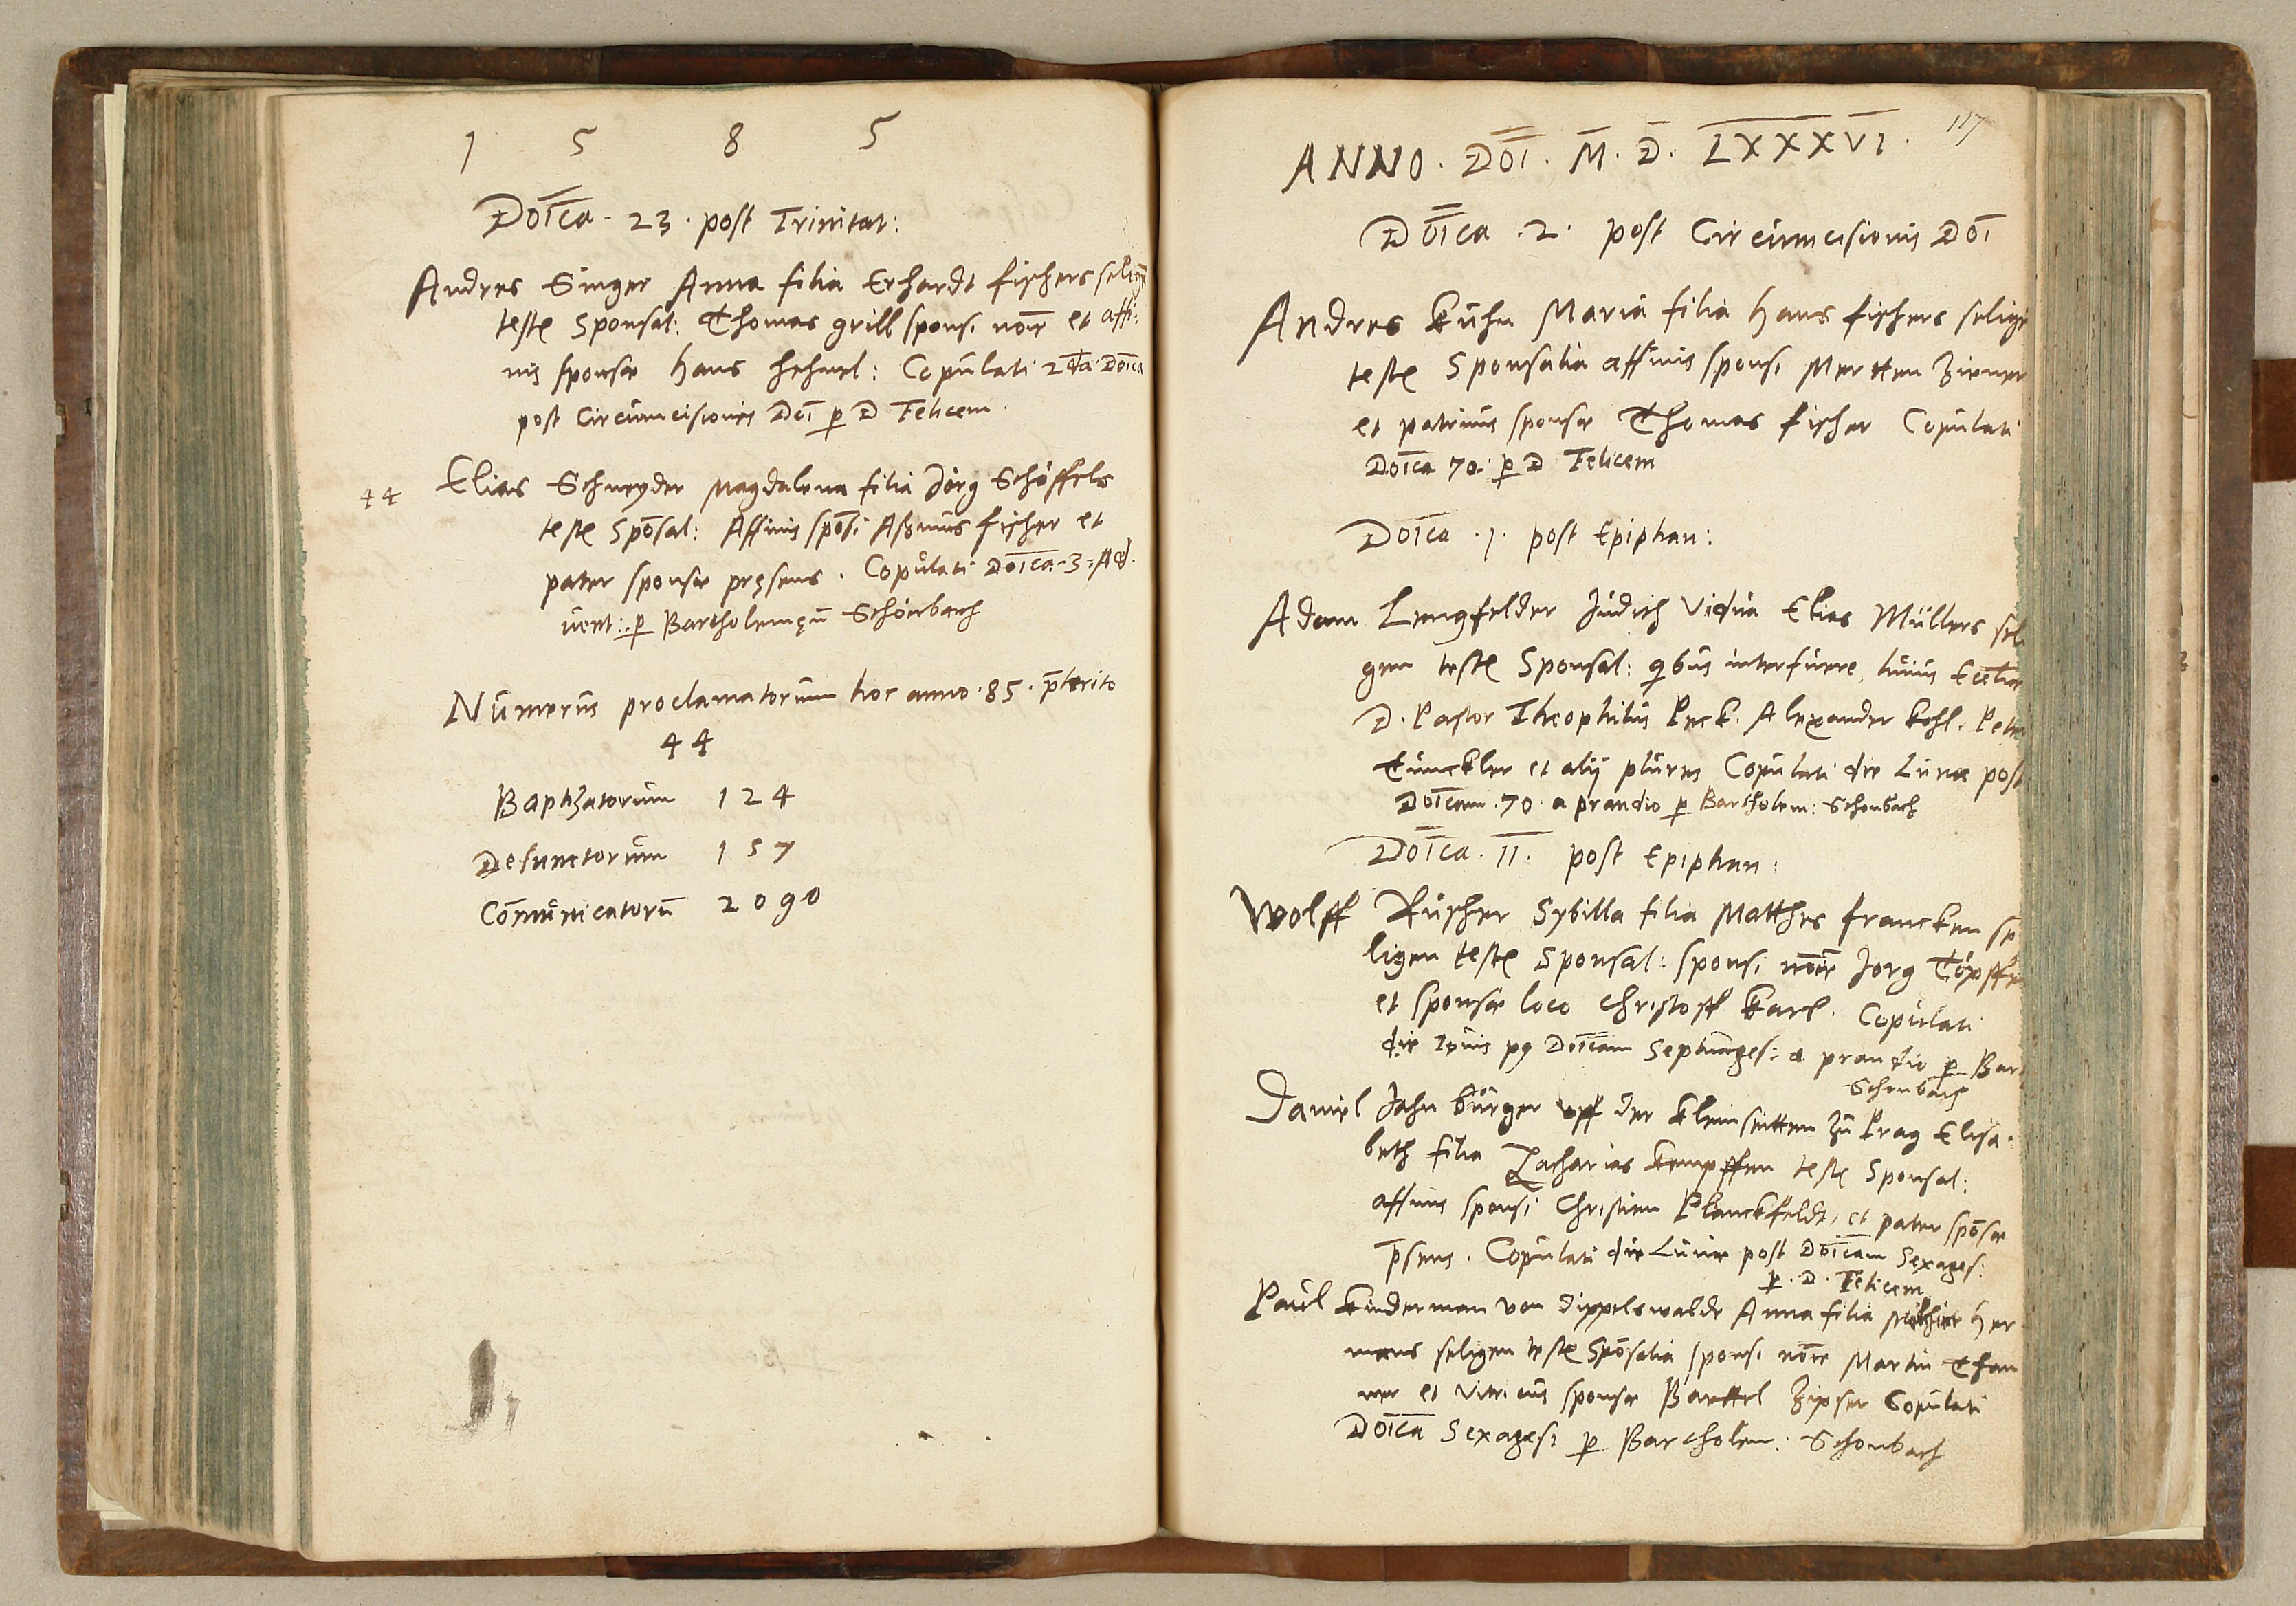 1 5 8 5
Doīca. 23. post Trinitat:
Andres Singer Anna filia Erhardt fischers selign̄
teste Sponsal: Thomas grill sponsi noīe et affi:
nis sponsæ Hans hehnel: Copulati 2da Doīca
post Circumcisionis Doī p D Felicem.
44 Elias Schneyder Magdalena filia Jörg Schöffels
teste Spōsal: Affinis spōsi Aßmus fischer et
pater sponsæ pręsens. Copulati Doīca. 3. Ad
vent: p Bartholemęū Schönbach
Numerus proclamatorum hoc anno. 85. p̄terito
44
Baptizatorum 124
Defunctorum 157
Com̄unicatorū 2090
117
ANNO. DOĪ. M̄. D̄. LXXXVI.
Doīca. 2. post Circumcisionis Doī
Andres Kuhn Maria filia Hans fischers selige
teste Sponsalia affinis sponsi Mertten Ziener
et patruus sponsæ Thomas fischer Copulati
Doīca 70. p D Felicem
Doīca. 1. post Epiphan:
Adam Lengfelder Judith vidua Elias Müllers sel
gen teste Sponsal: qbus interfuere, huius Eccliæ
D. Pastor Theophilus Peck. Alexander Kohl. Petr
Tunckler et alij plures Copulati die Lunæ post
Doīcam. 70. a prandio p Bartholem: Schonbach
Doīca. II. post Epiphan:
Wolff Ruscher Sybilla filia Matthes francken se
ligen teste Sponsal: sponsi noīe Jorg Töpffe
et sponsæ loco Christoff Karl. Copulati
die Iovis p9 Doīcam Septuages: a prandio p Bar
Schonbach
Daniel Jahn bürger uff der Kleinseitten zu Prag Elisa.
beth filia Zacharias Kempffen teste Sponsal:
affinis sponsi Christien Planckfeldt, et pater spōsæ
p̄sens. Copulati die Lunæ post Doīcam Sexages:
p. D. Felicem
Paul Kinderman von Dippelswalde Anna filia Melchior Her
mans seligen teste Spōsalia sponsi noīe Martin Than
ner et vitricus sponsæ Barttel Zipser Copulati
Doīca Sexagesi p Bartholem: Schonbach